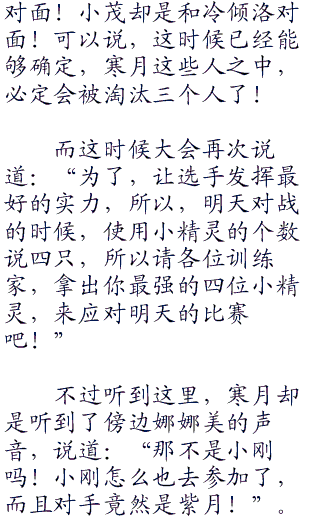 对面！小茂却是和冷倾洛对
面！可以说，这时候已经能
够确定，寒月这些人之中，
必定会被淘汰三个人了！
而这时候大会再次说
道：“为了，让选手发挥最
好的实力，所以，明天对战
的时候，使用小精灵的个数
说四只，所以请各位训练
家，拿出你最强的四位小精
灵，来应对明天的比赛
吧！”
不过听到这里，寒月却
是听到了傍边娜娜美的声
音，说道：“那不是小刚
吗！小刚怎么也去参加了，
而且对手竟然是紫月！”。